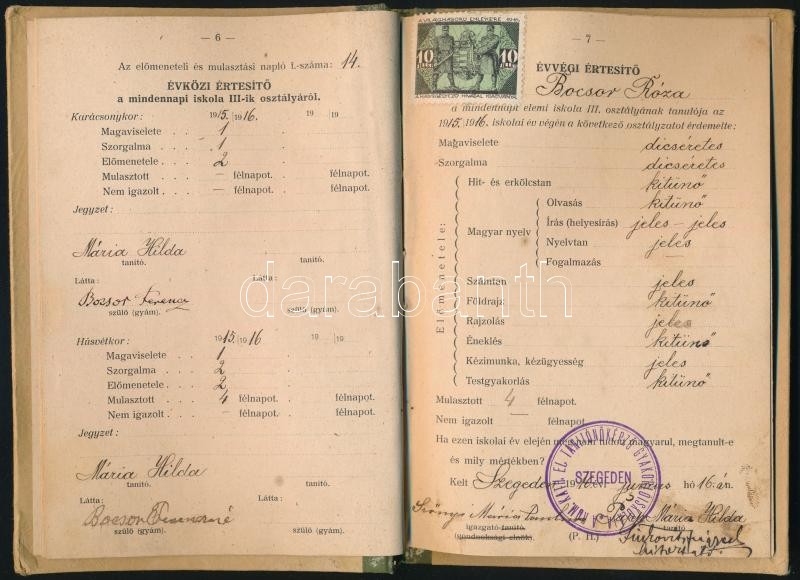 — 6 —
Az előmeneteli és mulasztási napló l.-száma: 14.
ÉVKÖZI ÉRTESITŐ
a mindennapi iskola III-ik osztályáról.
Karácsonykor: 1915. 1916. 19 19
Magaviselete . . . 1
Szorgalma . . . . 1
Előmenetele . . . 2
Mulasztott . . . — félnapot. félnapot.
Nem igazolt . . . — félnapot. félnapot.
Jegyzet:
Mária Hilda
tanító. tanító.
Látta: Látta:
Bocsor Ferencz
szülő (gyám). szülő (gyám).
Húsvétkor: 1915. 1916 19 19
Magaviselete . . . 1
Szorgalma . . . . 2
Előmenetele . . . 2
Mulasztott . . . 4 félnapot. félnapot.
Nem igazolt . . . — félnapot. félnapot.
Jegyzet:
Mária Hilda
tanító. tanító.
Látta: Látta:
Bocsor Ferencné
szülő (gyám). szülő (gyám).
A VILÁGHÁBORÚ EMLÉKÉRE
10 10
— 7 —
ÉVVÉGI ÉRTESITŐ
Bocsor Róza
a mindennapi elemi iskola III. osztályának tanulója az
1915./1916. iskolai év végén a következő osztályzatot érdemelte:
Magaviselete dicséretes
Szorgalma dicséretes
Előmenetele:
Hit- és erkölcstan kitünő
Magyar nyelv
Olvasás kitünő
Írás (helyesírás) jeles — jeles
Nyelvtan jeles
Fogalmazás —
Számtan jeles
Földrajz kitünő
Rajzolás jeles
Éneklés kitünő
Kézimunka, kézügyesség jeles
Testgyakorlás kitünő
Mulasztott 4 félnapot.
Nem igazolt — félnapot.
Ha ezen iskolai év elején még nem tudott magyarul, megtanult-e
és mily mértékben?
Kelt Szegeden 1916 évi junius hó 16.-án.
SZEGEDEN
Mária Hilda
igazgató-tanító.
(gondnoksági elnök) (P. H.)
darabanth